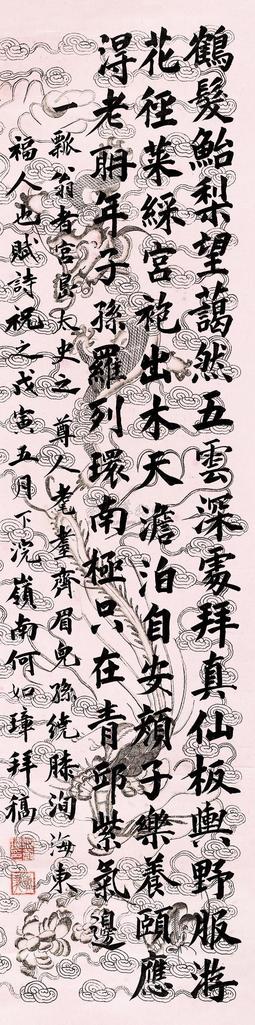 鶴髮鮐梨望藹然五雲深處拜真仙板輿野服游
花徑萊綵宮袍出木天澹泊自安顏子樂養頤應
得老聃年子孫羅列環南極只在青邱紫氣邊
一瓢翁者宮島太史之 尊人耄耋齊眉兒孫繞膝洵海東
福人也賦詩祝之戊寅五月下浣嶺南何如璋拜稿